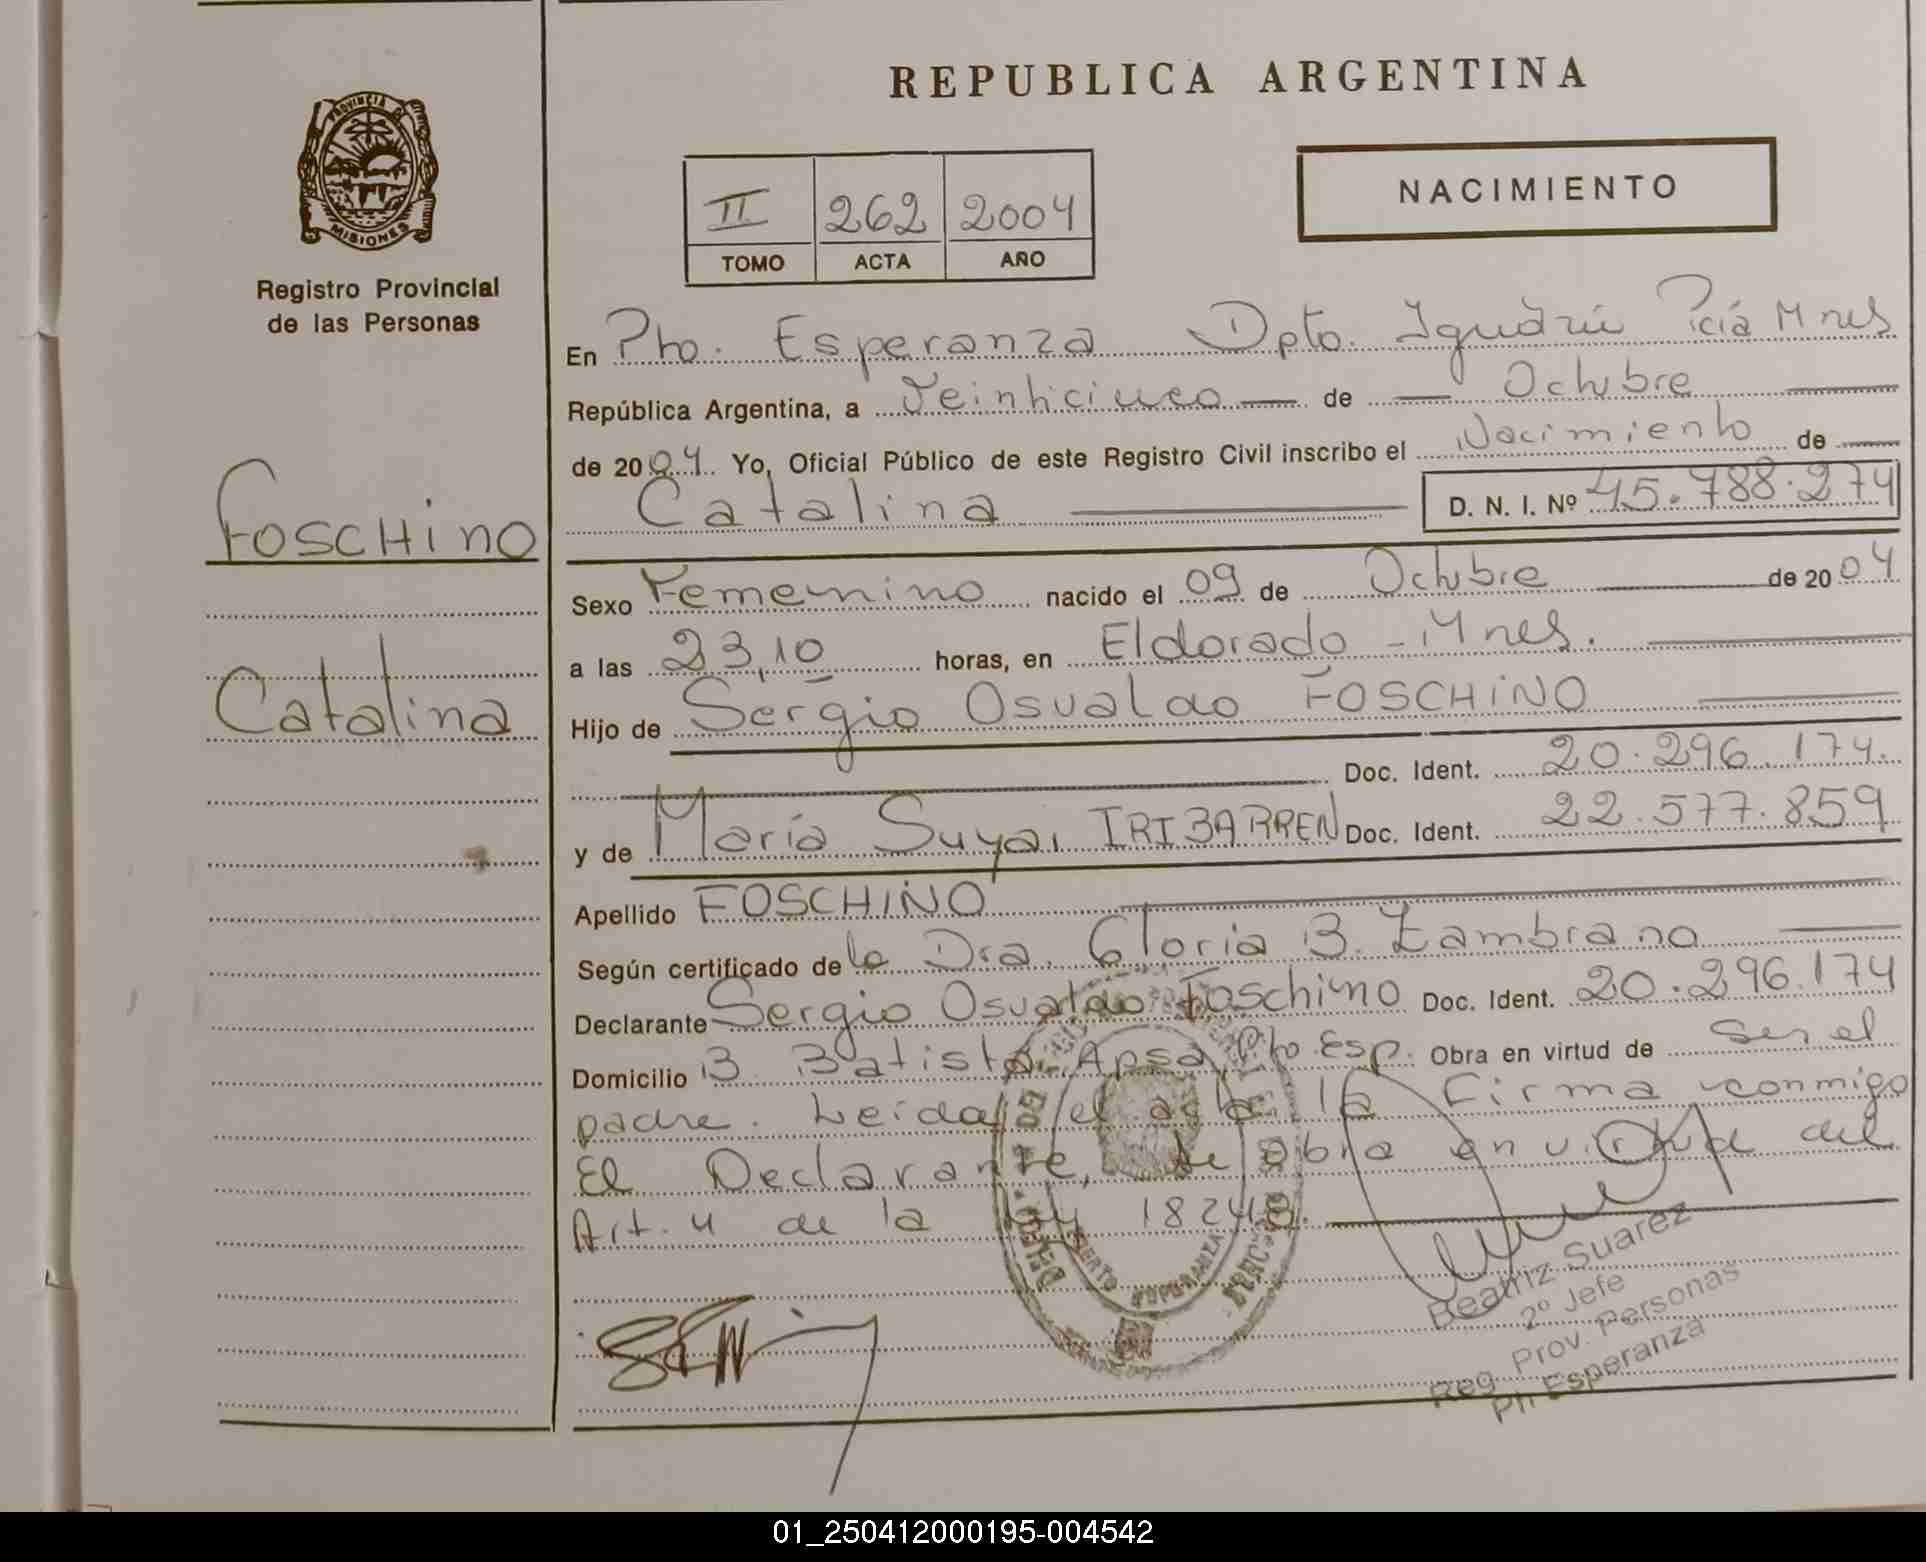 REPUBLICA ARGENTINA
PROVINCIA
MISIONES
Registro Provincial
de las Personas
II 262 2004
TOMO ACTA AÑO
NACIMIENTO
En Pto. Esperanza Dpto. Iguazú Pcia Mnes
República Argentina, a Veinticinco de Octubre
de 2004. Yo, Oficial Público de este Registro Civil inscribo el Nacimiento de
Catalina D. N. I. Nº 45.788.274
FOSCHINO
Catalina
Sexo Femenino nacido el 09 de Octubre de 2004
a las 23,10 horas, en Eldorado - Mnes.
Hijo de Sergio Osvaldo FOSCHINO
Doc. Ident. 20.296.174.
y de María Suyai IRIBARREN Doc. Ident. 22.577.859
Apellido FOSCHINO
Según certificado de la Dra. Gloria B. Zambrano
Declarante Sergio Osvaldo Foschino Doc. Ident. 20.296.174
Domicilio B. Batista Apsa, Pto. Esp. Obra en virtud de Ser el
padre. Leida el acta la Firma conmigo
El Declarante, Se Obra en virtud del
Art. 4 de la Ley 18248.
Beatriz Suarez
2º Jefe
Reg. Prov. Personas
Esperanza
01_250412000195-004542